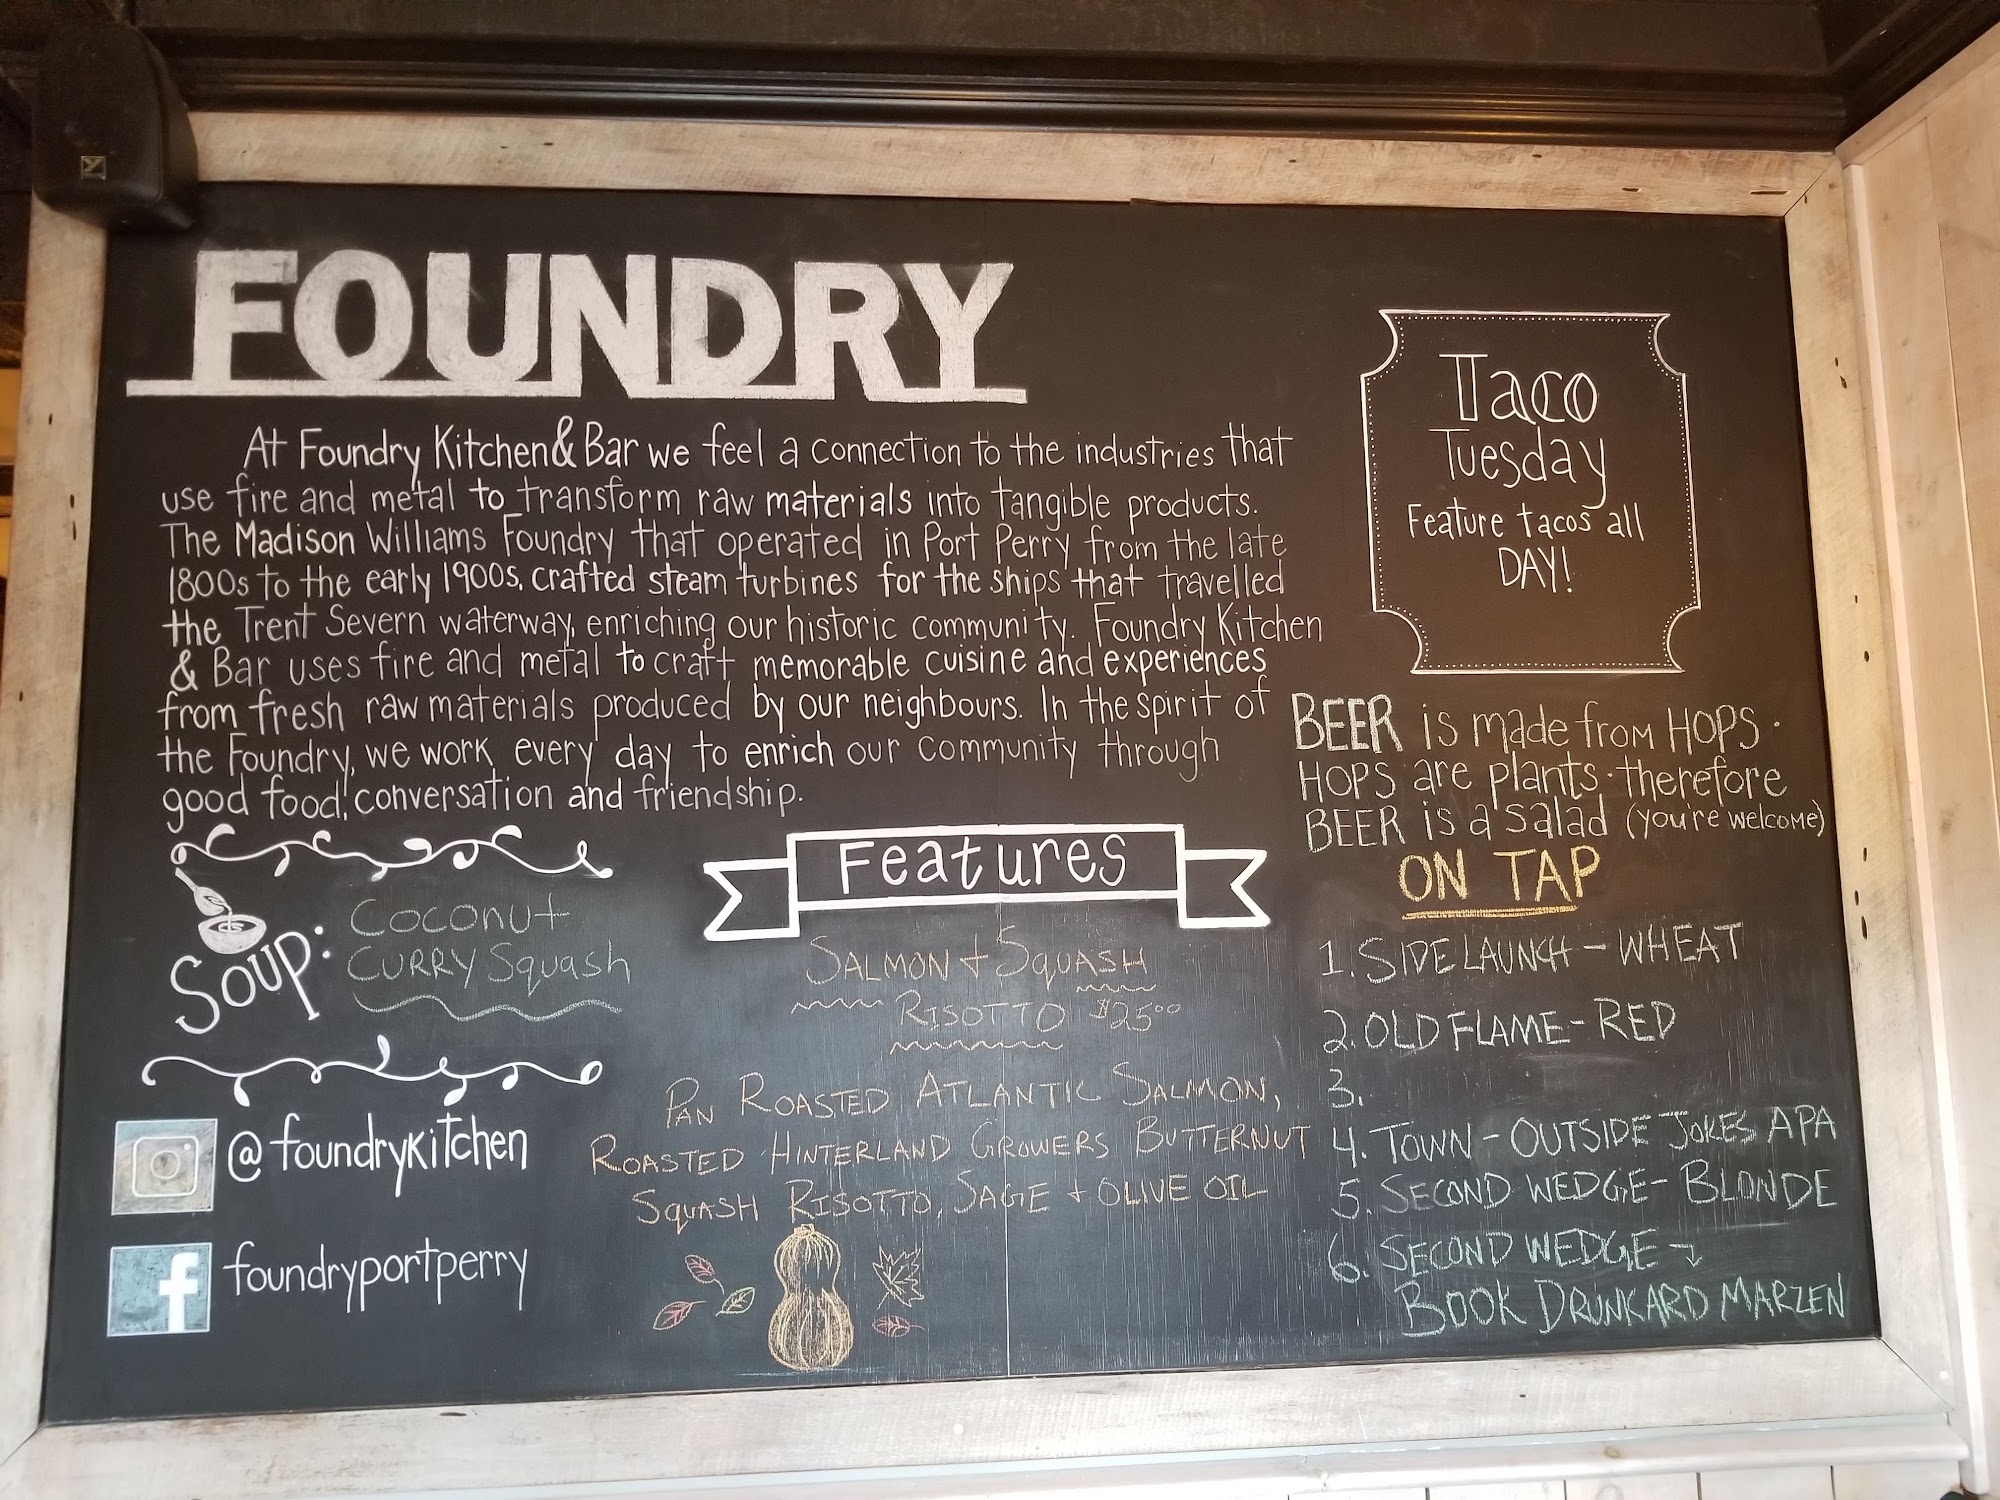 FOUNDRY
At Foundry Kitchen & Bar we feel a connection to the industries that
use fire and metal to transform raw materials into tangible products.
The Madison Williams Foundry that operated in Port Perry from the late
1800s to the early 1900s, crafted steam turbines for the ships that travelled
the Trent Severn waterway, enriching our historic community. Foundry Kitchen
& Bar uses fire and metal to craft memorable cuisine and experiences
from fresh raw materials produced by our neighbours. In the spirit of
the Foundry, we work every day to enrich our community through
good food, conversation and friendship.
Soup:
Coconut
Curry Squash
@foundrykitchen
f
foundryportperry
Features
SALMON + SQUASH
RISOTTO $25.00
PAN ROASTED ATLANTIC SALMON,
ROASTED HINTERLAND GROWERS BUTTERNUT
SQUASH RISOTTO, SAGE + OLIVE OIL
Taco
Tuesday
Feature tacos all
DAY!
BEER is made from HOPS.
HOPS are plants. therefore
BEER is a salad (you're welcome)
ON TAP
1. SIDE LAUNCH - WHEAT
2. OLD FLAME - RED
3.
4. TOWN - OUTSIDE JOKES APA
5. SECOND WEDGE - BLONDE
6. SECOND WEDGE →
BOOK DRUNKARD MARZEN